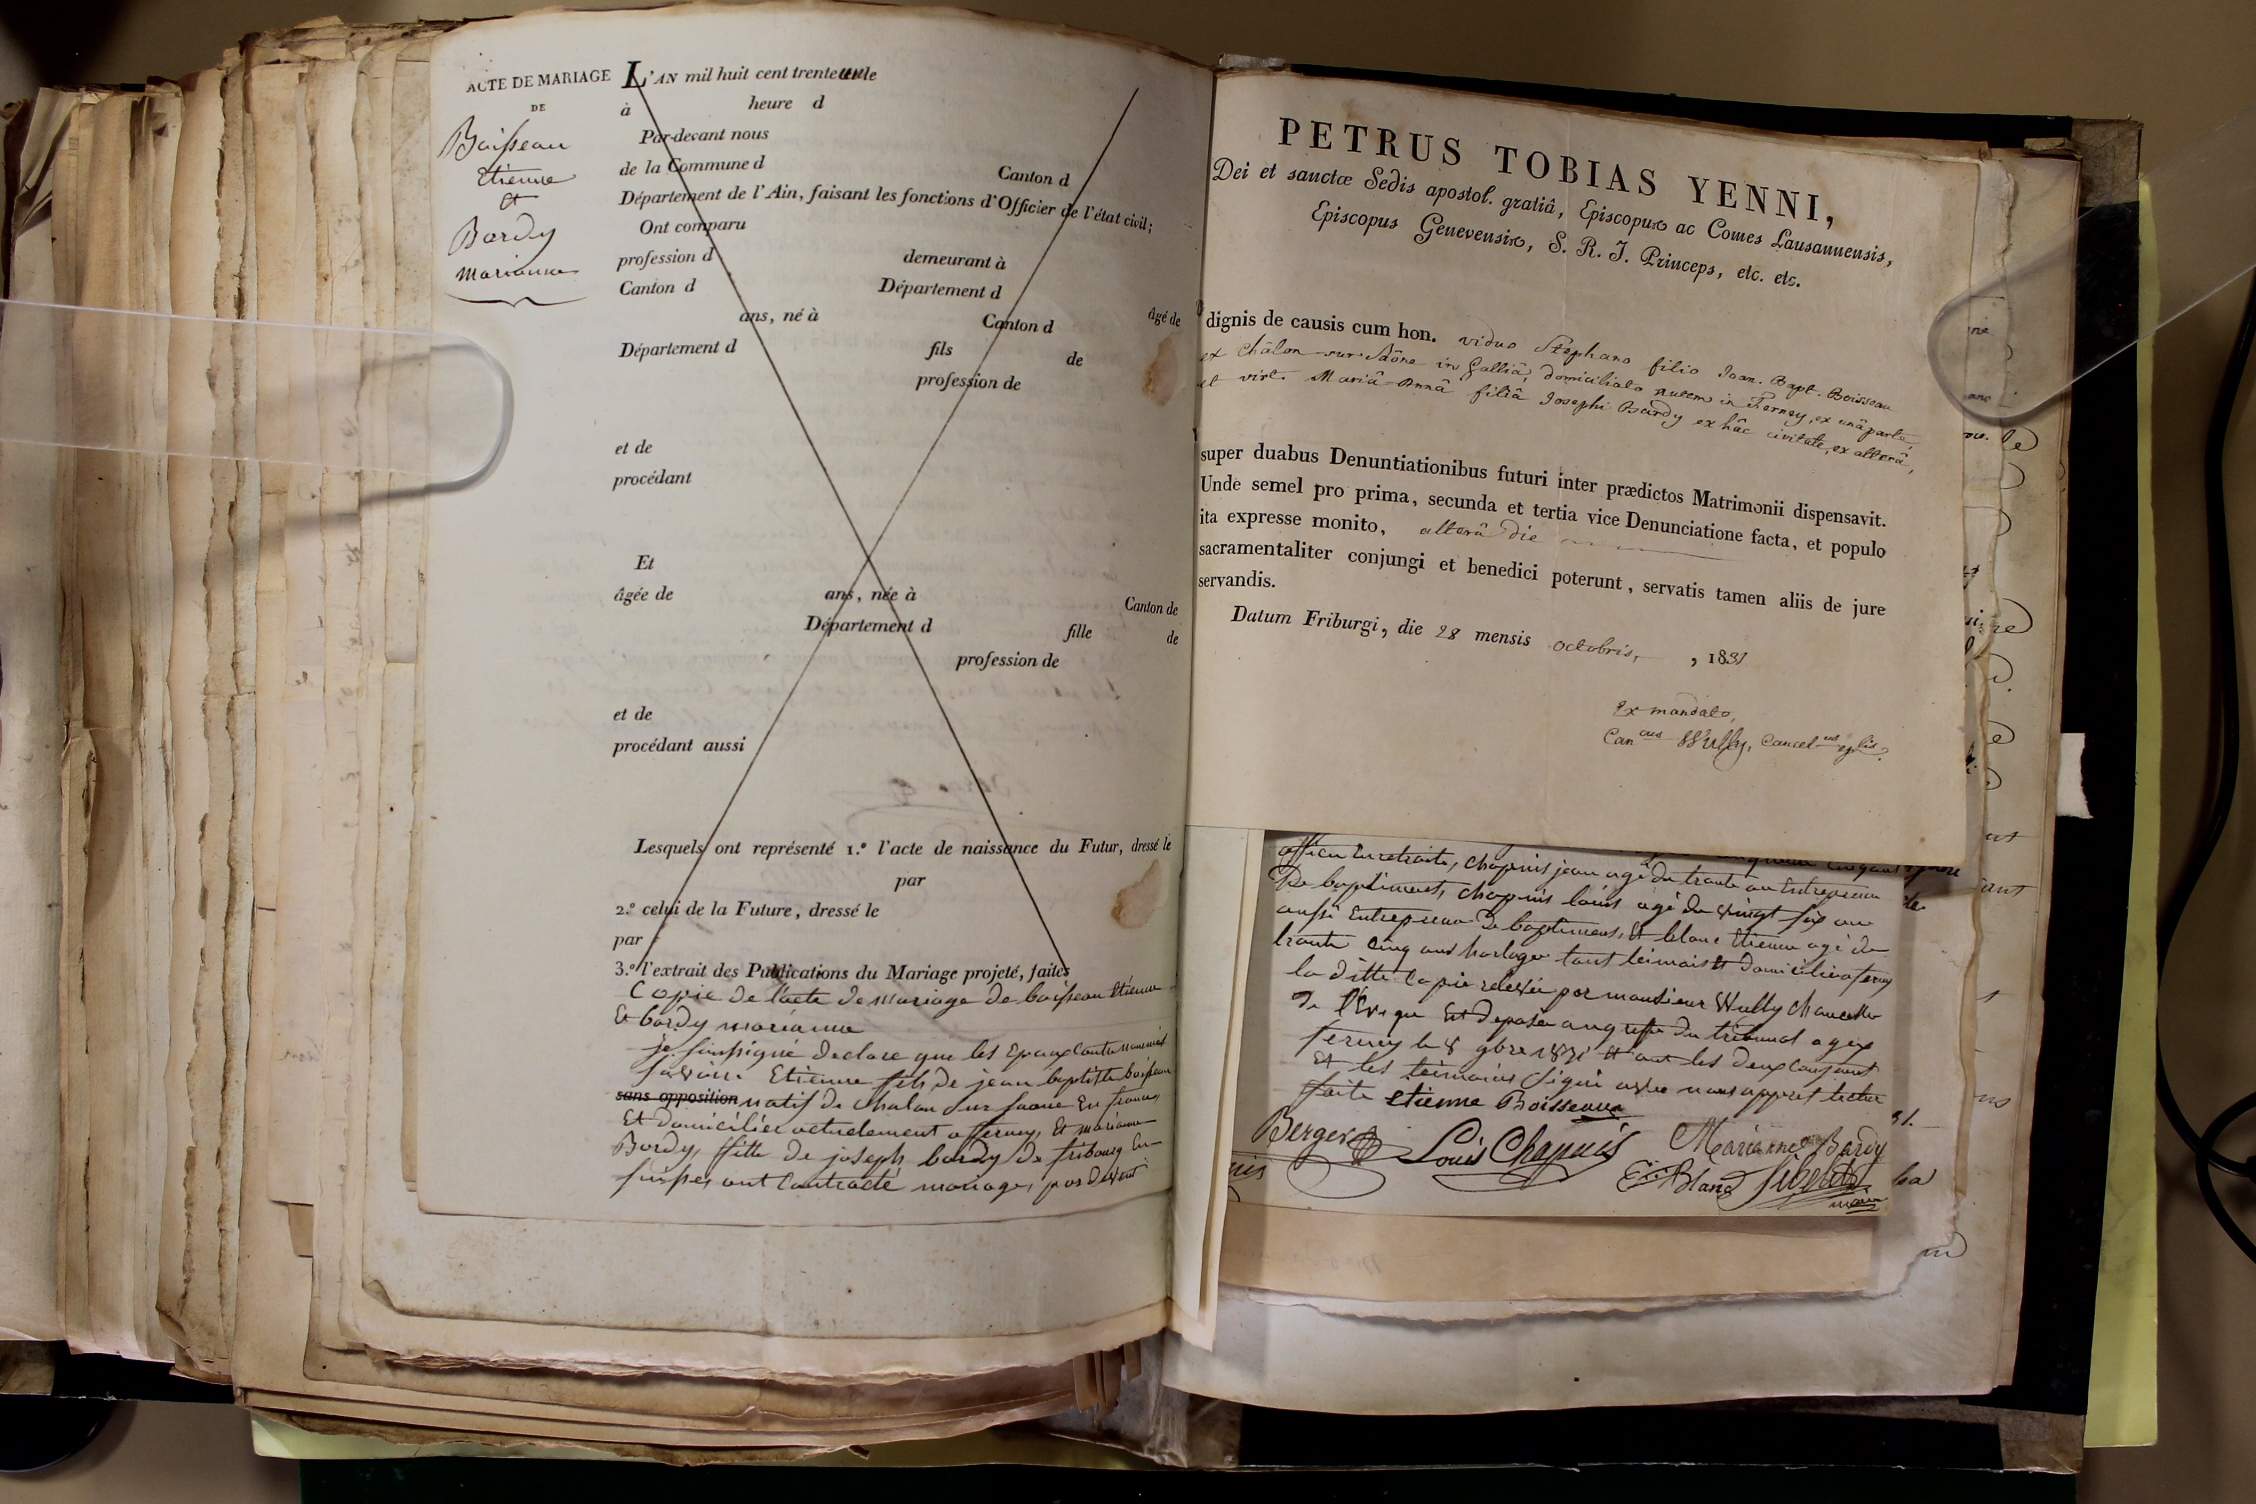 ACTE DE MARIAGE
DE
Boisseau
Etienne
et
Bardy
marianne
L'AN mil huit cent trente un le
à heure d
Par-devant nous
de la Commune d Canton d
Département de l'Ain, faisant les fonctions d'Officier de l'état civil;
Ont comparu
profession d demeurant à
Canton d Département d
âgé de
ans, né à Canton d
Département d fils de
profession de
et de
procédant
Et
âgée de ans, née à Canton de
Département d fille de
profession de
et de
procédant aussi
Lesquels ont représenté 1.º l'acte de naissance du Futur, dressé le
par
2.º celui de la Future, dressé le
par
3.º l'extrait des Publications du Mariage projeté, faites
Copie de l'acte de mariage de boisseau Etienne
Et bardy marianne
je soussigné declare que les Epoux
Etienne fils de jean baptiste boisseau
sans opposition natif de chalon sur saone En france,
Et domicilié actuelement a fferney, Et marianne
Bardy, ffille de joseph bardy de fribourg En
suisse, ont Contracté mariage, par devant
PETRUS TOBIAS YENNI,
Dei et sanctæ Sedis apostol. gratiâ, Episcopus ac Comes Lausannensis,
Episcopus Genevensis, S. R. I. Princeps, etc. etc.
dignis de causis cum hon. viduo Stephano filio Joan. Bapt. Boisseau
ex Châlon-sur-Saône in Galliâ, domiciliato autem in Ferney, ex unâ parte,
et virt. Mariâ-Annâ filiâ Josephi Bardy ex hâc civitate, ex alterâ,
super duabus Denuntiationibus futuri inter prædictos Matrimonii dispensavit.
Unde semel pro prima, secunda et tertia vice Denunciatione facta, et populo
ita expresse monito, alterâ die
sacramentaliter conjungi et benedici poterunt, servatis tamen aliis de jure
servandis.
Datum Friburgi, die 28 mensis octobris, , 1831
Ex mandato,
Can.cus Wully, Cancel.
officier En retraite, chapuis jean agé de trante an Entrepreneur
De baptiments, chapuis louis agé de vingt six ans
aussi Entrepreneur De baptiments, Et blanc Etienne agé de
trante Cinq ans horloger tout temoins Et domicilié a ferney
la ditte Copie relevée par monsieur Wully Chancellier
De l'Eveque Et deposée au greffe du tribunal a gex
ferney le 8 9bre 1831 Et ont les deux conjoint
Et les temoins signé avec nous apprés lecture
faite etienne Boisseau
Berger Louis Chapuis Marianne Bardy
E. Blanc
maire